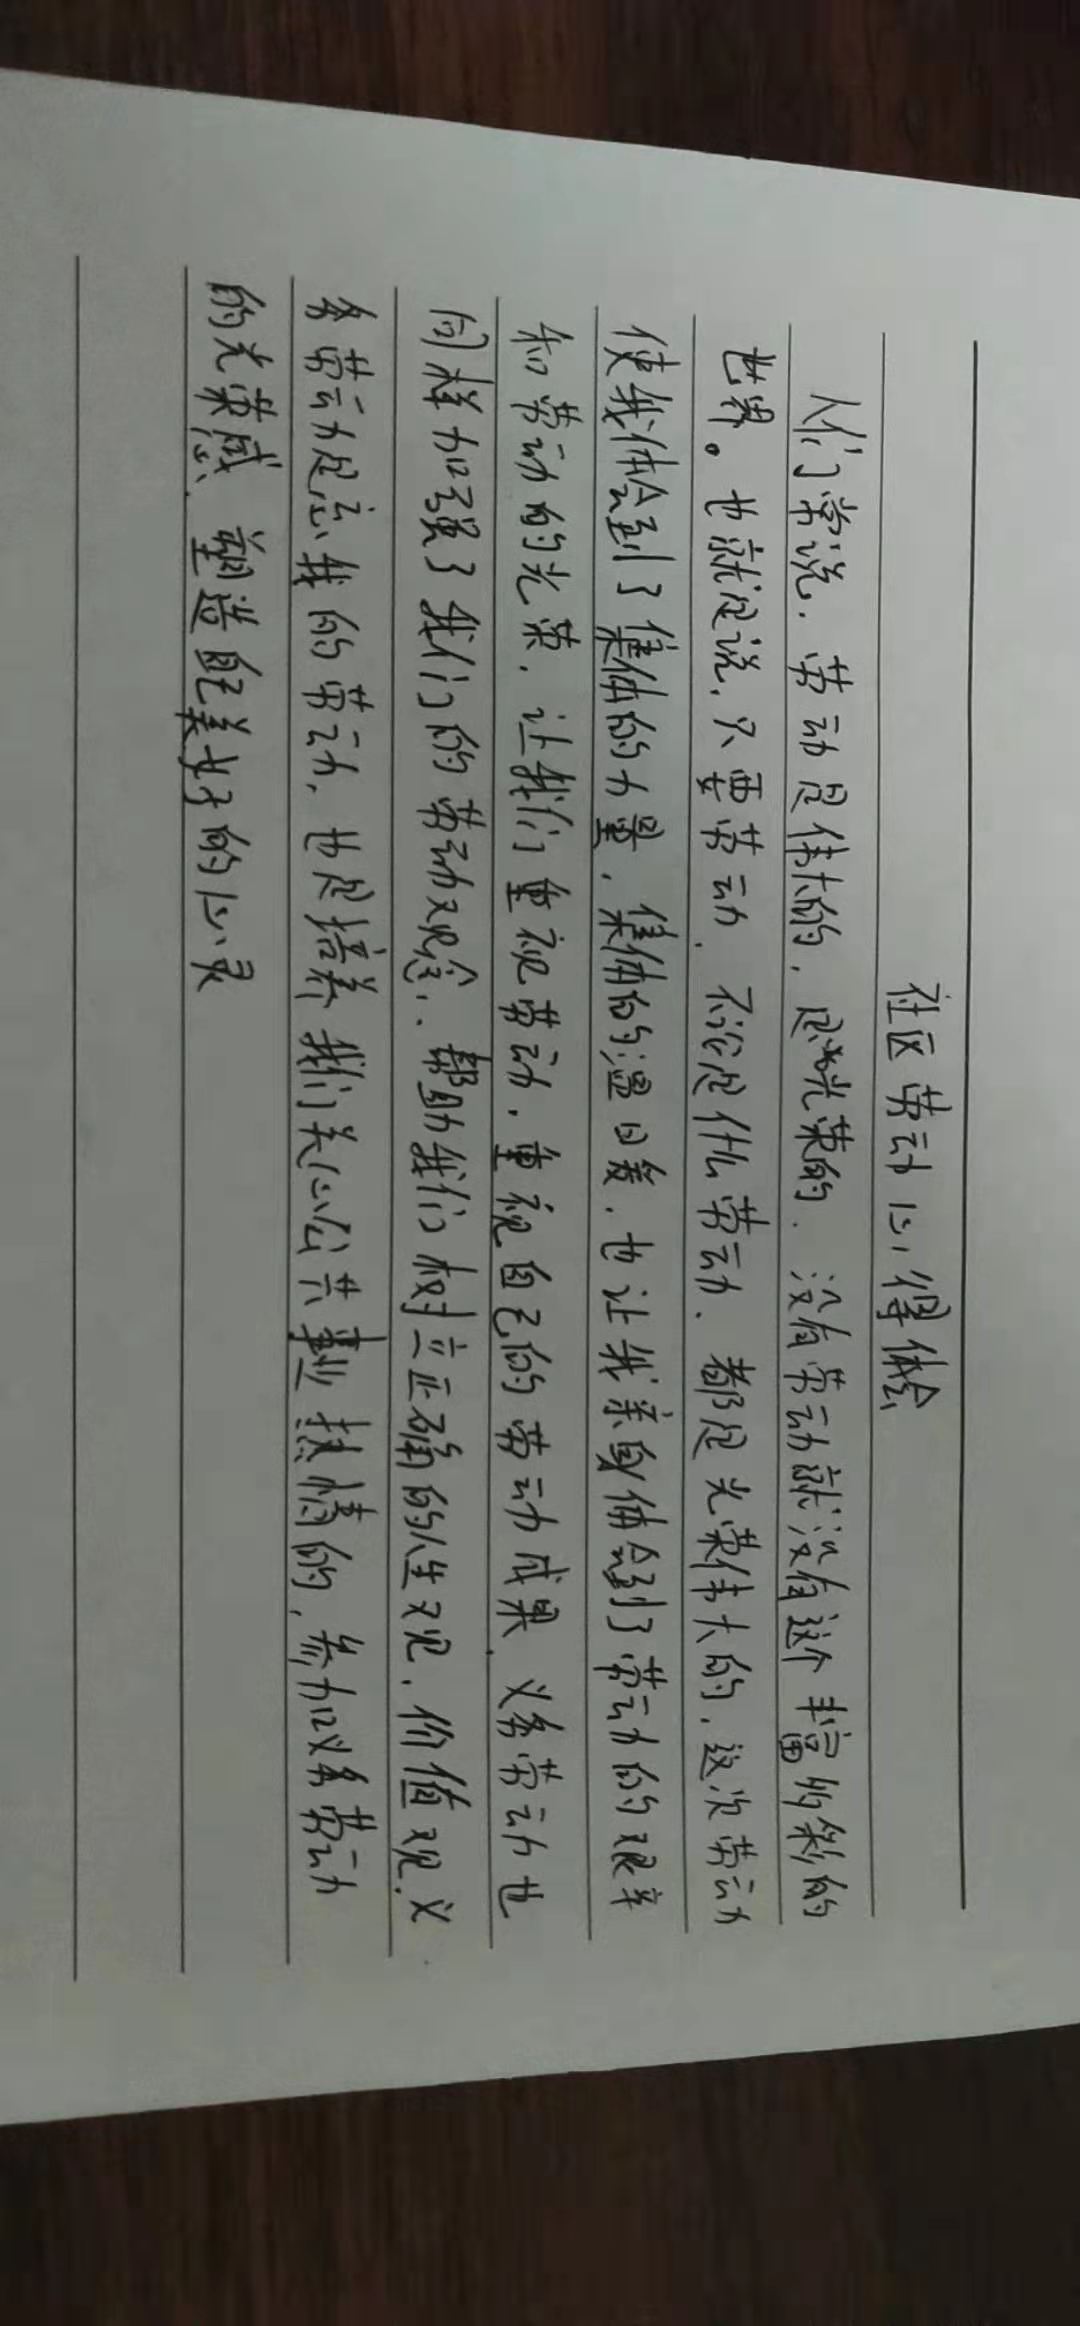 社区劳动心得体会
人们常说，劳动是伟大的，是光荣的，没有劳动就没有这个丰富多彩的
世界。也就是说，只要劳动，不论是什么劳动、都是光荣伟大的，这次劳动
使我体会到了集体的力量，集体的温暖，也让我亲身体会到了劳动的艰辛
和劳动的光荣，让我们重视劳动，重视自己的劳动成果，义务劳动也
同样加强了我们的劳动观念，帮助我们树立正确的人生观，价值观，义
务劳动是忘我的劳动，也是培养我们关心公共事业热情的，参加义务劳动
的光荣感，塑造配美好的心灵